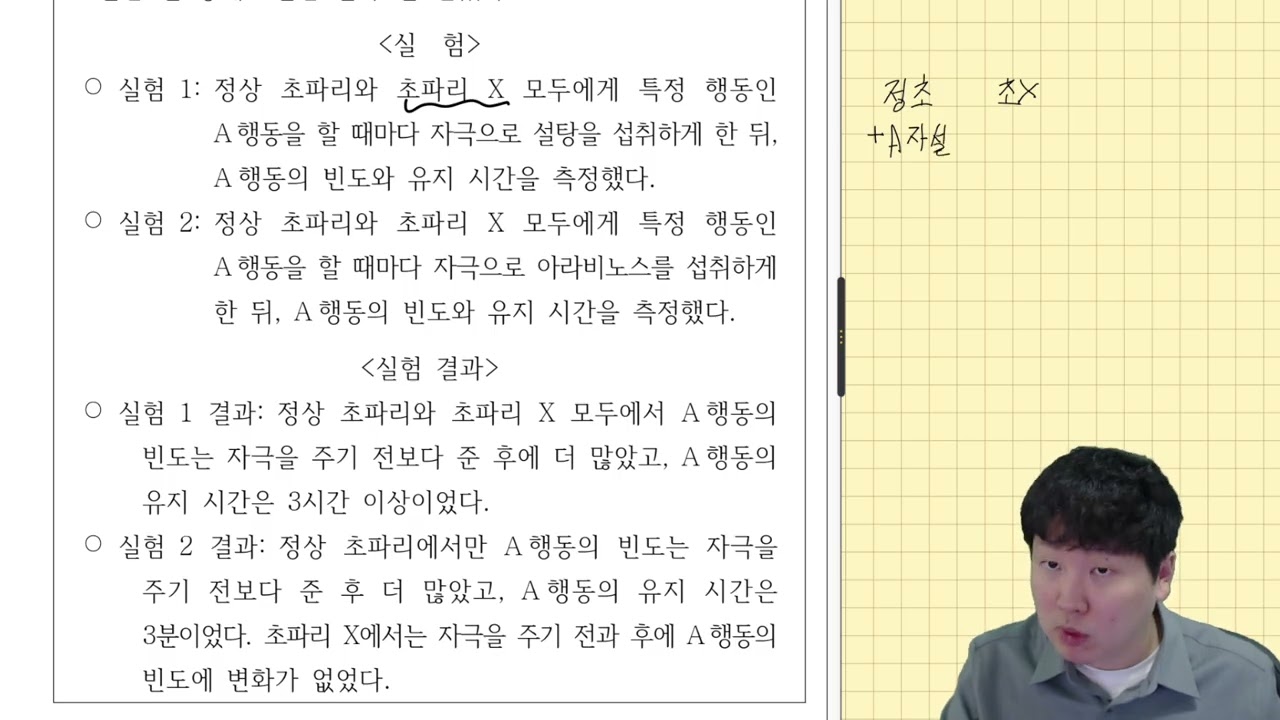 <실 험>
○ 실험 1: 정상 초파리와 초파리 X 모두에게 특정 행동인
A행동을 할 때마다 자극으로 설탕을 섭취하게 한 뒤,
A행동의 빈도와 유지 시간을 측정했다.
○ 실험 2: 정상 초파리와 초파리 X 모두에게 특정 행동인
A행동을 할 때마다 자극으로 아라비노스를 섭취하게
한 뒤, A행동의 빈도와 유지 시간을 측정했다.
<실험 결과>
○ 실험 1 결과: 정상 초파리와 초파리 X 모두에서 A행동의
빈도는 자극을 주기 전보다 준 후에 더 많았고, A행동의
유지 시간은 3시간 이상이었다.
○ 실험 2 결과: 정상 초파리에서만 A행동의 빈도는 자극을
주기 전보다 준 후 더 많았고, A행동의 유지 시간은
3분이었다. 초파리 X에서는 자극을 주기 전과 후에 A행동의
빈도에 변화가 없었다.
정초 초X
+A자설